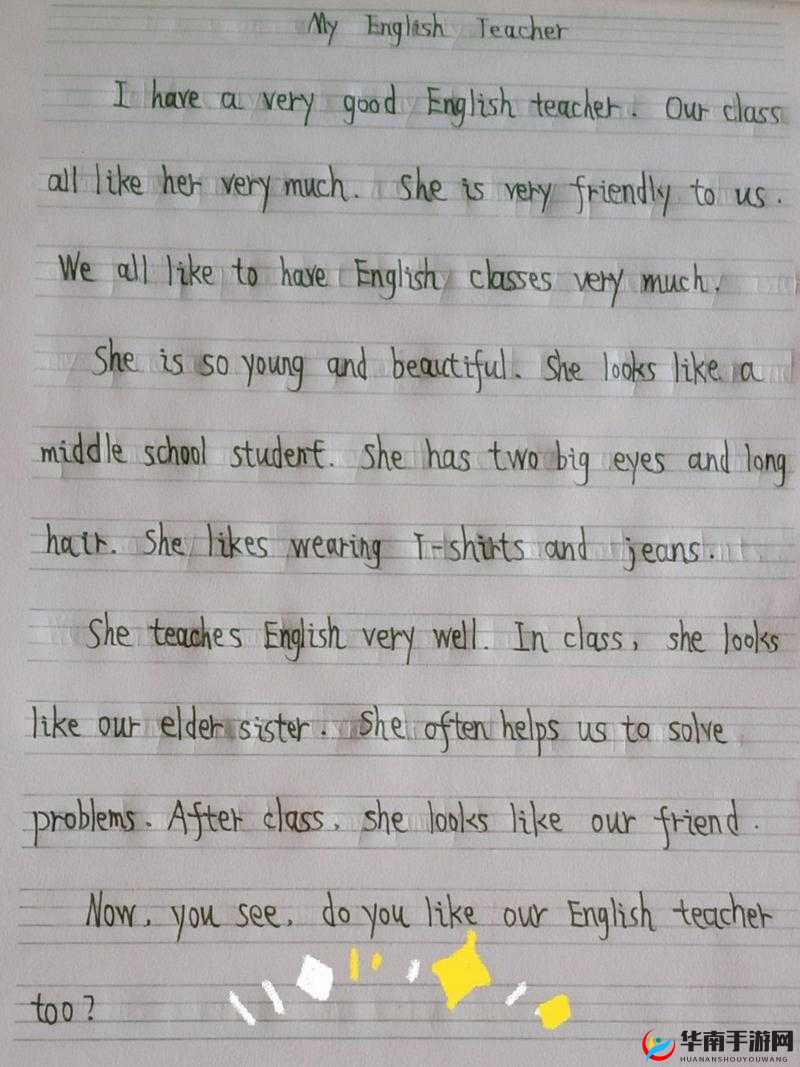 My English Teacher
I have a very good English teacher. Our class
all like her very much. She is very friendly to us.
We all like to have English classes very much.
She is so young and beautiful. She looks like a
middle school student. She has two big eyes and long
hair. She likes wearing T-shirts and jeans.
She teaches English very well. In class, she looks
like our elder sister. She often helps us to solve
problems. After class, she looks like our friend.
Now, you see, do you like our English teacher
too?
华南手游网
HUANANSHOUYOUWANG